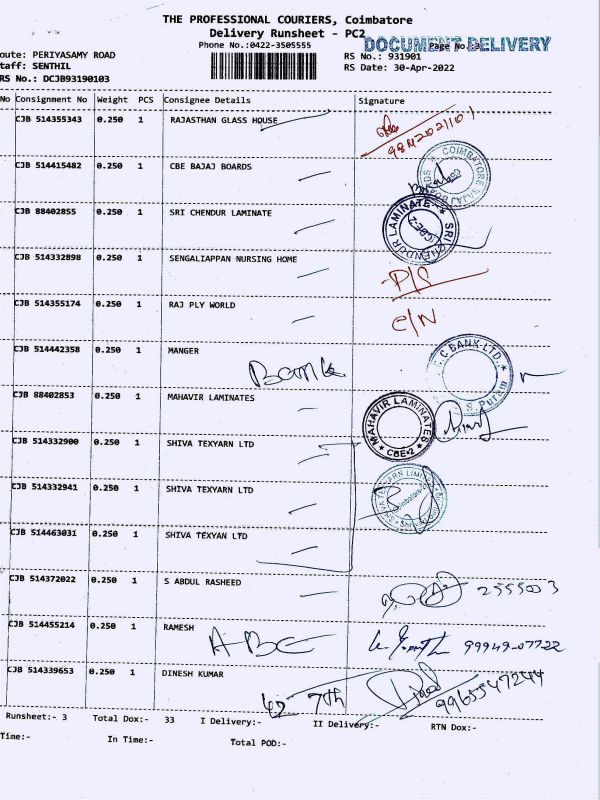 THE PROFESSIONAL COURIERS, Coimbatore
Delivery Runsheet - PC2
Phone No.:0422-3505555
DOCUMENT DELIVERY
Page No.:3
oute: PERIYASAMY ROAD
RS No.: 931901
taff: SENTHIL
RS Date: 30-Apr-2022
RS No.: DCJB93190103
No Consignment No Weight PCS Consignee Details Signature
CJB 514355343 0.250 1 RAJASTHAN GLASS HOUSE
CJB 514415482 0.250 1 CBE BAJAJ BOARDS
COIMBATORE BAJAJ BOARDS
CJB 88402855 0.250 1 SRI CHENDUR LAMINATE
SRI CHENDUR LAMINATE CBE-2
CJB 514332898 0.250 1 SENGALIAPPAN NURSING HOME
P/S
CJB 514355174 0.250 1 RAJ PLY WORLD
C/N
CJB 514442358 0.250 1 MANGER
Bank
C BANK-LTD.
S. Puram
CJB 88402853 0.250 1 MAHAVIR LAMINATES
MAHAVIR LAMINATES CBE-2
CJB 514332900 0.250 1 SHIVA TEXYARN LTD
CJB 514332941 0.250 1 SHIVA TEXYARN LTD
SHIVA TEXYARN LIMITED
CJB 514463031 0.250 1 SHIVA TEXYAN LTD
CJB 514372022 0.250 1 S ABDUL RASHEED
2555003
CJB 514455214 0.250 1 RAMESH
ABE
99949-07722
CJB 514339653 0.250 1 DINESH KUMAR
7th
9965547244
Runsheet:- 3 Total Dox:- 33 I Delivery:- II Delivery:- RTN Dox:-
Time:- In Time:- Total POD:-